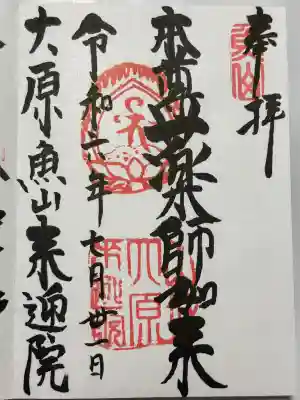 奉拝
本尊薬師如来
令和六年七月廿一日
大原魚山来迎院
大原